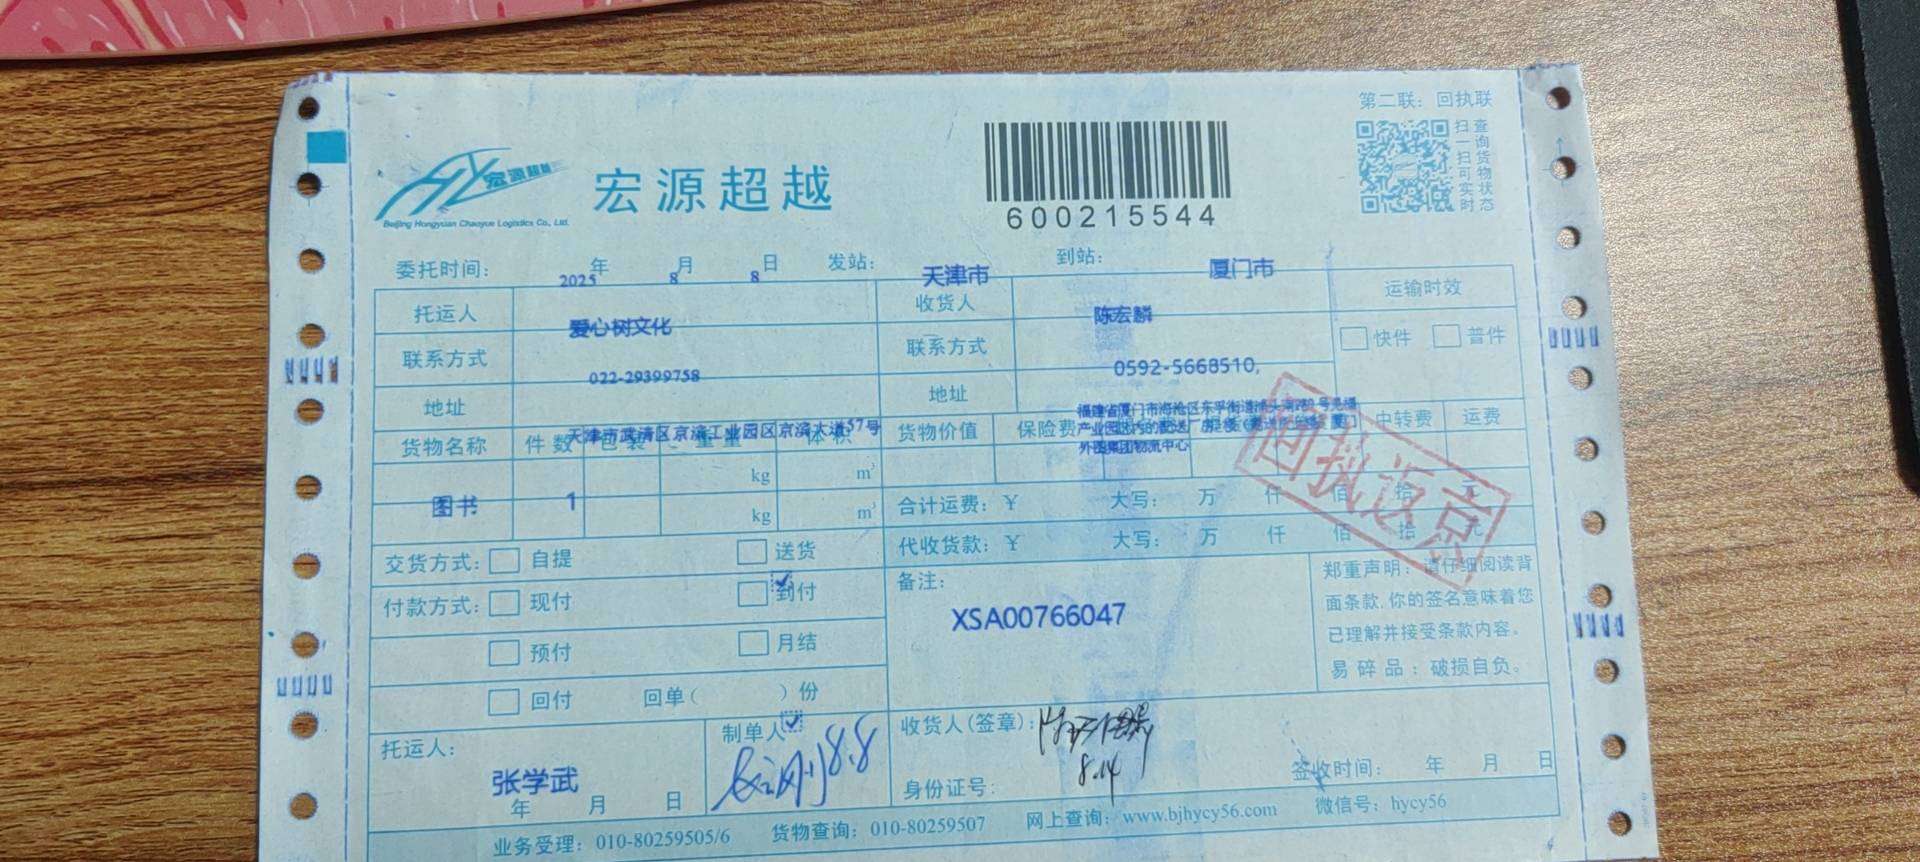 第二联：回执联
扫一扫可实时
查询货物状态
宏源超越
Beijing Hongyuan Chaoyue Logistics Co., Ltd.
宏源超越
600215544
委托时间： 2025 年 8 月 8 日 发站： 天津市 到站： 厦门市
托运人 爱心树文化 收货人 陈宏麟 运输时效
联系方式 022-29399758 联系方式 0592-5668510, 快件 普件
地址 天津市武清区京滨工业园区京滨大道57号 地址
福建省厦门市海沧区东孚街道
外图集团物流中心
货物名称 件数 包装 重量 体积 货物价值 保险费 中转费 运费
kg m³
图书 1 kg m³
合计运费：￥ 大写： 万 仟 佰 拾 元
代收货款：￥ 大写： 万 仟 佰 拾 元
回执返京
交货方式： 自提 送货
付款方式： 现付 到付
预付 月结
回付 回单（ ）份
备注：
XSA00766047
郑重声明：请仔细阅读背
面条款,你的签名意味着您
已理解并接受条款内容。
易碎品：破损自负。
托运人：
张学武
年 月 日
制单人
8.8
收货人(签章)：
8.14
身份证号：
签收时间： 年 月 日
业务受理：010-80259505/6 货物查询：010-80259507 网上查询：www.bjhycy56.com 微信号：hycy56